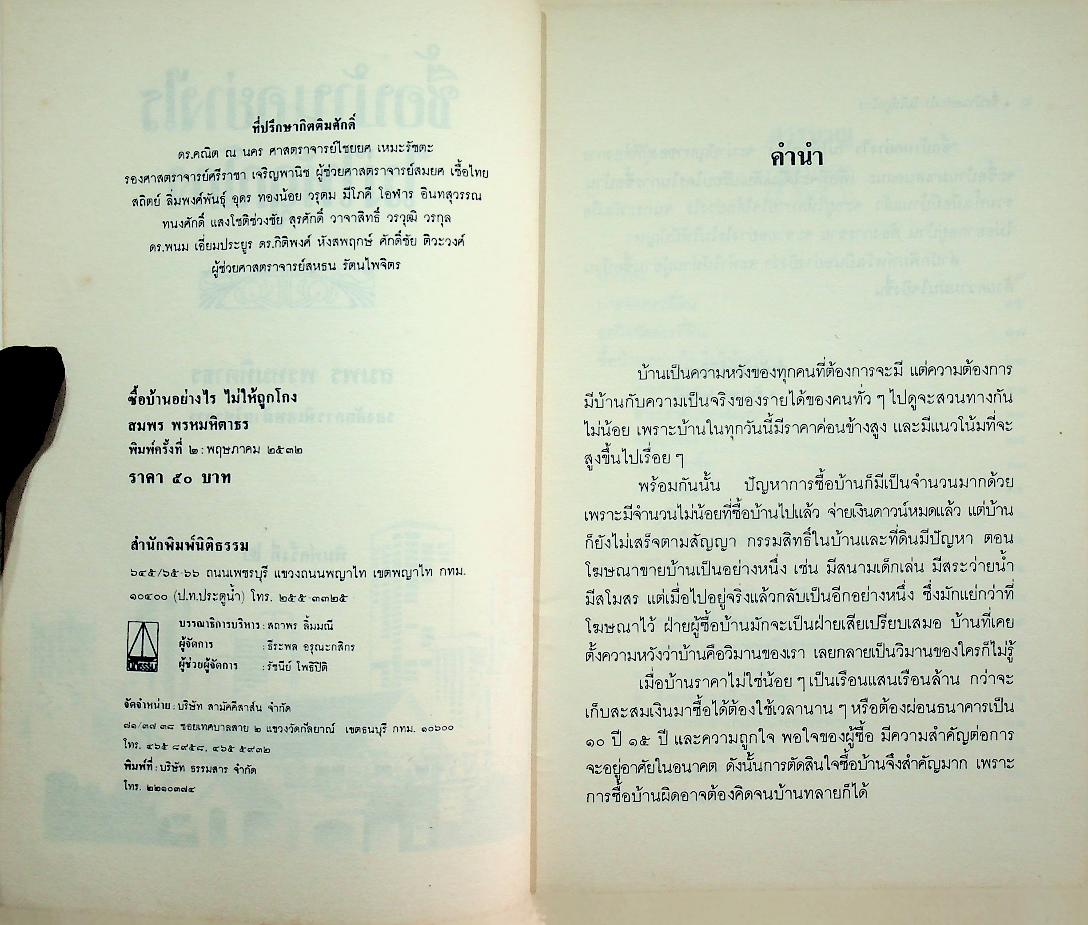 ที่ปรึกษากิตติมศักดิ์
ดร.คณิต ณ นคร ศาสตราจารย์ไชยยศ เหมะรัชตะ
รองศาสตราจารย์ศรีราชา เจริญพานิช ผู้ช่วยศาสตราจารย์สมยศ เชื้อไทย
สถิตย์ ลิ่มพงศ์พันธุ์ อุดร ทองน้อย วรุตม มีโภคี โอฬาร อินทสุวรรณ
ทนงศักดิ์ แสงโชติช่วงชัย สุรศักดิ์ วาจาสิทธิ์ วรวุฒิ วรกุล
ดร.พนม เอี่ยมประยูร ดร.กิติพงศ์ หังสพฤกษ์ ศักดิ์ชัย ติวะวงศ์
ผู้ช่วยศาสตราจารย์สหธน รัตนไพจิตร
ซื้อบ้านอย่างไร ไม่ให้ถูกโกง
สมพร พรหมหิตาธร
พิมพ์ครั้งที่ ๒ : พฤษภาคม ๒๕๓๒
ราคา ๕๐ บาท
สำนักพิมพ์นิติธรรม
๖๔๕/๖๕-๖๖ ถนนเพชรบุรี แขวงถนนพญาไท เขตพญาไท กทม.
๑๐๔๐๐ (ป.ท.ประตูน้ำ) โทร. ๒๕๕-๓๓๒๕
บรรณาธิการบริหาร : สถาพร ลิ้มมณี
ผู้จัดการ : ธีระพล อรุณะกสิกร
ผู้ช่วยผู้จัดการ : รัชนีย์ โพธิปิติ
นิติธรรม
จัดจำหน่าย : บริษัท สามัคคีสาส์น จำกัด
๗๑/๓๗-๓๘ ซอยเทศบาลสาย ๒ แขวงวัดกัลยาณ์ เขตธนบุรี กทม. ๑๐๖๐๐
โทร. ๔๖๕-๘๙๕๘, ๔๖๕-๕๙๓๒
พิมพ์ที่ : บริษัท ธรรมสาร จำกัด
โทร. ๒๒๑๐๓๗๔
คำนำ
บ้านเป็นความหวังของทุกคนที่ต้องการจะมี แต่ความต้องการ
มีบ้านกับความเป็นจริงของรายได้ของคนทั่ว ๆ ไปดูจะสวนทางกัน
ไม่น้อย เพราะบ้านในทุกวันนี้มีราคาค่อนข้างสูง และมีแนวโน้มที่จะ
สูงขึ้นไปเรื่อย ๆ
พร้อมกันนั้น ปัญหาการซื้อบ้านก็มีเป็นจำนวนมากด้วย
เพราะมีจำนวนไม่น้อยที่ซื้อบ้านไปแล้ว จ่ายเงินดาวน์หมดแล้ว แต่บ้าน
ก็ยังไม่เสร็จตามสัญญา กรรมสิทธิ์ในบ้านและที่ดินมีปัญหา ตอน
โฆษณาขายบ้านเป็นอย่างหนึ่ง เช่น มีสนามเด็กเล่น มีสระว่ายน้ำ
มีสโมสร แต่เมื่อไปอยู่จริงแล้วกลับเป็นอีกอย่างหนึ่ง ซึ่งมักแย่กว่าที่
โฆษณาไว้ ฝ่ายผู้ซื้อบ้านมักจะเป็นฝ่ายเสียเปรียบเสมอ บ้านที่เคย
ตั้งความหวังว่าบ้านคือวิมานของเรา เลยกลายเป็นวิมานของใครก็ไม่รู้
เมื่อบ้านราคาไม่ใช่น้อย ๆ เป็นเรือนแสนเรือนล้าน กว่าจะ
เก็บสะสมเงินมาซื้อได้ต้องใช้เวลานาน ๆ หรือต้องผ่อนธนาคารเป็น
๑๐ ปี ๑๕ ปี และความถูกใจ พอใจของผู้ซื้อ มีความสำคัญต่อการ
จะอยู่อาศัยในอนาคต ดังนั้นการตัดสินใจซื้อบ้านจึงสำคัญมาก เพราะ
การซื้อบ้านผิดอาจต้องคิดจนบ้านทลายก็ได้